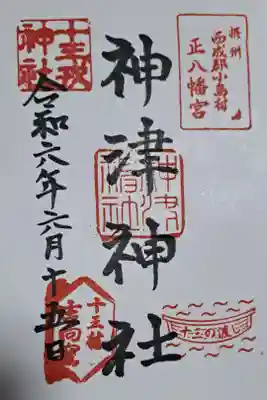 摂州
西成郡小島村
正八幡宮
神津神社
十三戎
神社
令和六年六月十五日
十三戎
十三の渡し